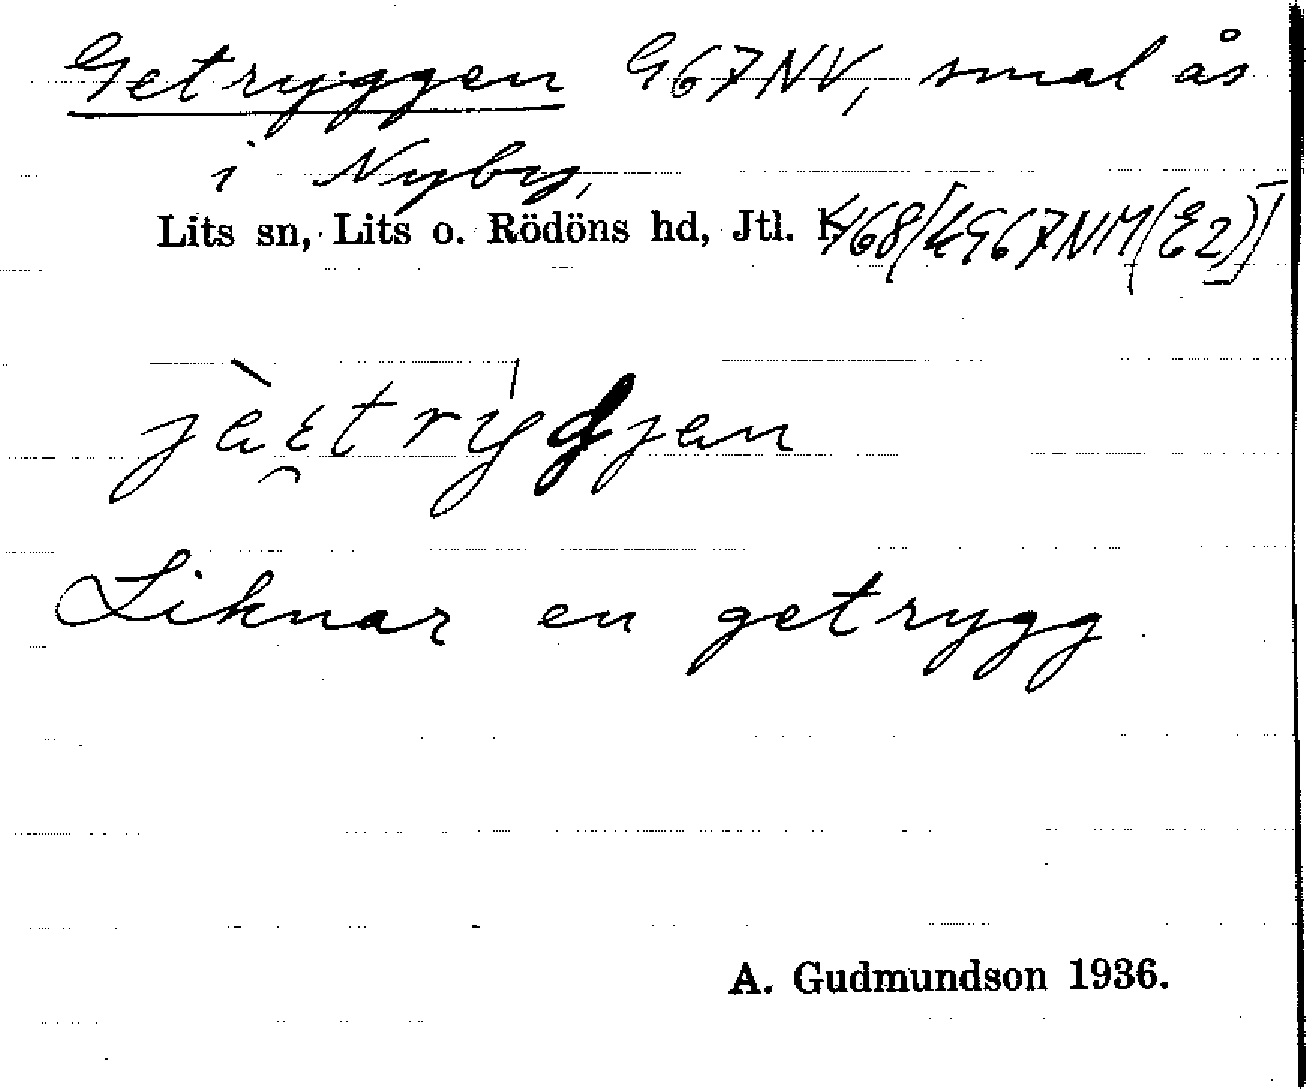 Getryggen G67NV, smal ås
i Nyby,
Lits sn, Lits o. Rödöns hd, Jtl. l.
jètryggjen
Liknar en getrygg
A. Gudmundson 1936.